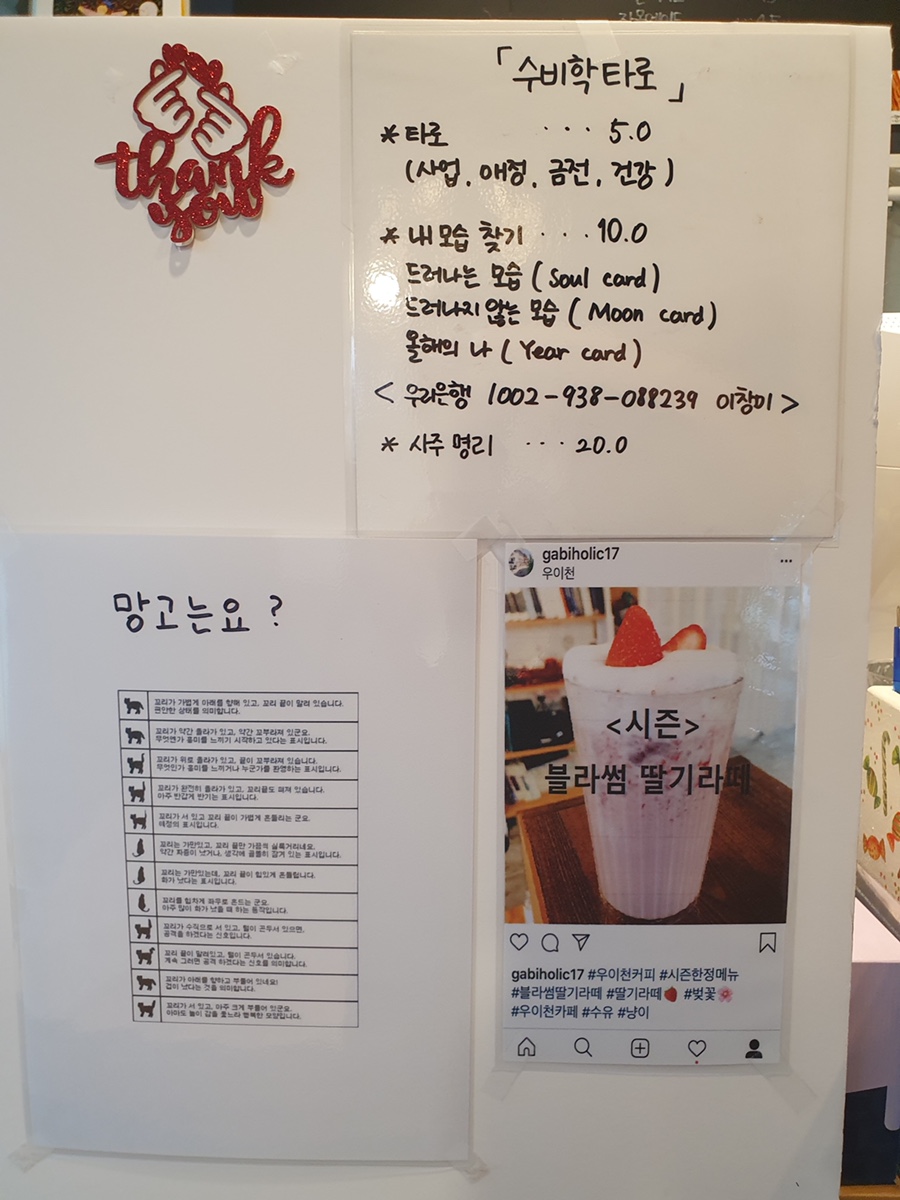 thank
you
「수비학타로」
* 타로 ... 5.0
(사업, 애정, 금전, 건강)
* 내모습 찾기 ... 10.0
드러나는 모습 (Soul card)
드러나지 않는 모습 (Moon card)
올해의 나 (Year card)
<우리은행 1002-938-088239 이창미>
* 사주 명리 ... 20.0
망고는요?
꼬리가 가볍게 아래를 향해 있고, 꼬리 끝이 말려 있습니다.
편안한 상태를 의미합니다.
꼬리가 약간 올라가 있고, 약간 꼬부라져 있군요.
무엇엔가 흥미를 느끼기 시작하고 있다는 표시입니다.
꼬리가 위로 올라가 있고, 끝이 꼬부라져 있습니다.
무엇인가 흥미를 느끼거나 누군가를 환영하는 표시입니다.
꼬리가 완전히 올라가 있고, 꼬리끝도 펴져 있습니다.
아주 반갑게 반기는 표시입니다.
꼬리가 서 있고 꼬리 끝이 가볍게 흔들리는 군요.
애정의 표시입니다.
꼬리는 가만있고, 꼬리 끝만 가끔씩 실룩거리네요.
약간 짜증이 났거나, 생각에 골똘히 잠겨 있는 표시입니다.
꼬리는 가만있는데, 꼬리 끝이 힘있게 흔들립니다.
화가 났다는 표시입니다.
꼬리를 힘차게 좌우로 흔드는 군요.
아주 많이 화가 났을 때 하는 동작입니다.
꼬리가 수직으로 서 있고, 털이 곤두서 있으면,
공격을 하겠다는 신호입니다.
꼬리 끝이 말려있고, 털이 곤두서 있습니다.
계속 그러면 공격 하겠다는 신호를 의미합니다.
꼬리가 아래를 향하고 부풀어 있네요!
겁이 났다는 것을 의미합니다.
꼬리가 서 있고, 아주 크게 부풀어 있군요.
gabiholic17
우이천
<시즌>
블라썸 딸기라떼
gabiholic17 #우이천커피 #시즌한정메뉴
#블라썸딸기라떼 #딸기라떼🍓 #벚꽃🌸
#우이천카페 #수유 #냥이